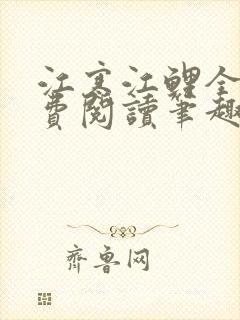 江寒江鲤全
费阅读笔趣
齐鲁网